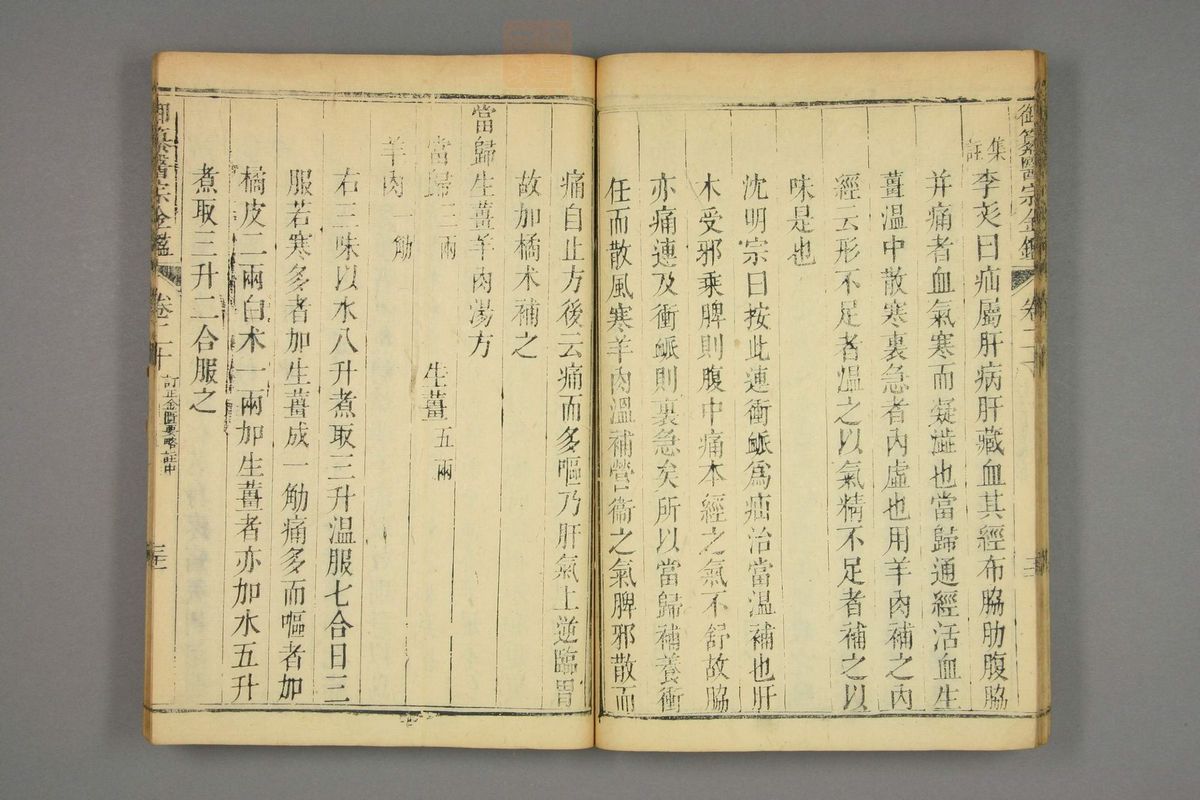 御纂醫宗金鑑 卷二十
集註 李彣曰疝屬肝病肝藏血其經布脇肋腹脇
并痛者血氣寒而凝澁也當歸通經活血生
薑溫中散寒裏急者內虛也用羊肉補之內
經云形不足者溫之以氣精不足者補之以
味是也
沈明宗曰按此連衝𧖴爲疝治當溫補也肝
木受邪乘脾則腹中痛本經之氣不舒故脇
亦痛連及衝𧖴則裏急矣所以當歸補養衝
任而散風寒羊肉溫補營衞之氣脾邪散而
痛自止方後云痛而多嘔乃肝氣上逆臨胃
故加橘术補之
當歸生薑羊肉湯方
當歸三兩 生薑五兩
羊肉一觔
右三味以水八升煮取三升溫服七合日三
服若寒多者加生薑成一觔痛多而嘔者加
橘皮二兩白术一兩加生薑者亦加水五升
煮取三升二合服之
御纂醫宗金鑑 卷二十 訂正金匱要略註中